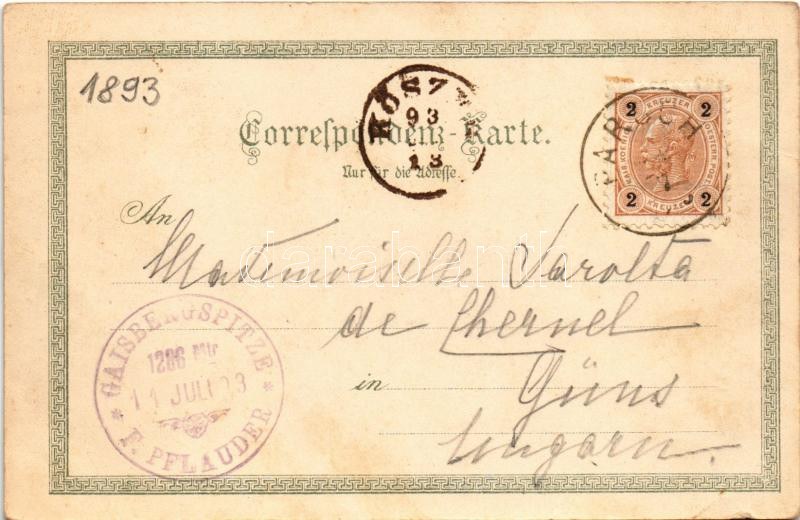 1893
KŐSZ
93
13
Correspondenz-Karte.
Nur für die Adresse.
2 KREUZER 2
2 KREUZER 2
PARSCH
An
Mademoiselle Sarolta
de Chernel
in
Güns
Ungarn.
GAISBERGSPITZE
1286 Mtr
11 JULI 93
F. PFLAUDER
darabanth